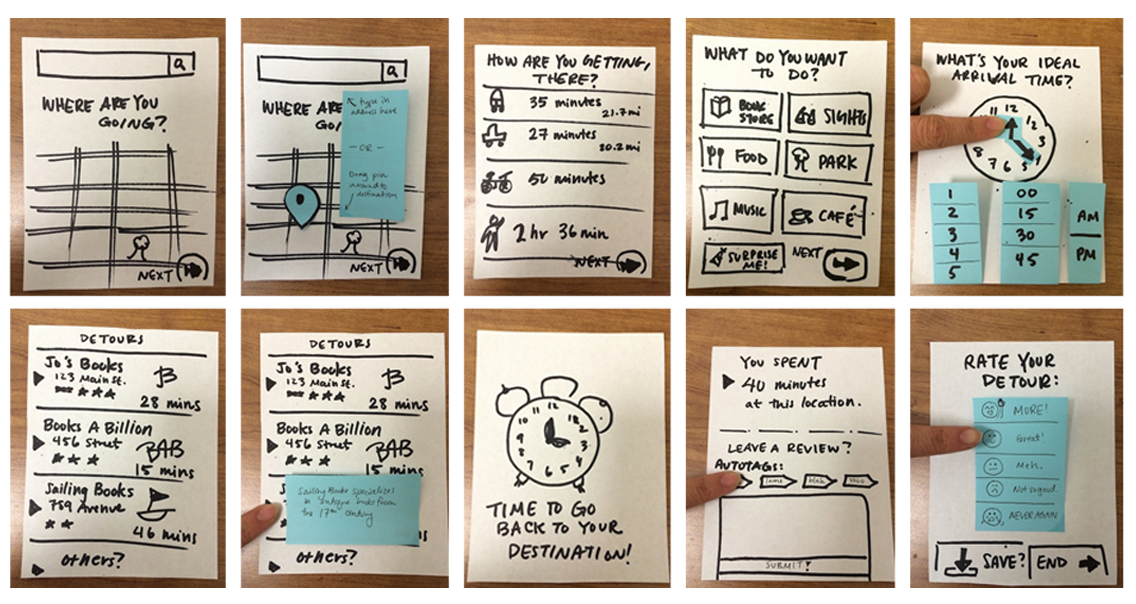 WHERE ARE YOU
GOING?
NEXT
WHERE ARE
type in
address here
- OR -
Drag pin
around to
destination
NEXT
HOW ARE YOU GETTING
THERE?
35 minutes
21.7 mi
27 minutes
20.2 mi
50 minutes
2 hr 36 min
NEXT
WHAT DO YOU WANT
TO DO?
BOOK
STORE
SIGHTS
FOOD
PARK
MUSIC
CAFÉ
SURPRISE
ME!
NEXT
WHAT'S YOUR IDEAL
ARRIVAL TIME?
1 00
2 15 AM
3 30
4 45 PM
5
DETOURS
Jo's Books
123 Main St.
B
28 mins
Books A Billion
456 Street
BAB
15 mins
Sailing Books
789 Avenue
46 mins
others?
DETOURS
Jo's Books
123 Main St.
B
28 mins
Books A Billion
456 Street
BAB
15 mins
Sailing Books specializes
in antique books from
the 17th century
others?
11 12 1 2 3 4 5 6 7 8 9 10
TIME TO GO
BACK TO YOUR
DESTINATION!
YOU SPENT
40 minutes
at this location.
LEAVE A REVIEW?
AUTOTAGS:
SUBMIT!
RATE YOUR
DETOUR:
MORE!
Great!
Meh.
Not so good.
NEVER AGAIN
SAVE? END